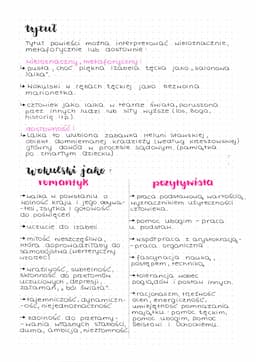 tytuł
Tytuł powieści można interpretować wieloznacznie,
metaforycznie lub dosłownie:
wieloznaczny, metaforyczny:
↳ pusta, choć piękna Izabela Łęcka jako „salonowa
lalka".
↳ Wokulski w rękach Łęckiej jako bezwolna
marionetka.
↳ człowiek jako lalka w teatrze świata, poruszana
przez innych ludzi lub siły wyższe (los, Boga,
historię itp.)
dosłowność:
↳ lalka to ulubiona zabawka Heluni Stawskiej,
obiekt domniemanej kradzieży (według Krzeszowskiej)
główny dowód w procesie sądowym (pamiątka
po zmarłym dziecku)
Wokulski jako:
romantyk
pozytywista
↳ walka w powstaniu o
wolność kraju i jego obywa-
-teli, zsyłka i gotowość
do poświęceń
↳ uczucie do Izabeli
↳ miłość nieszczęśliwa,
która doprowadziłaby do
samobójstwa (werteryczny
↳ wrażliwość, subtelność,
skłonność do przełomów
uczuciowych, depresji,
załamań, „ból świata".
↳ tajemniczość, dynamicz-
-ość, niejednoznaczność
↳ zdolność do przełamy-
-wania własnych słabości,
duma, ambicja, niezłomność
↳ praca podstawową wartością,
wyznacznikiem użyteczności
człowieka.
↳ pomoc ubogim - praca
u podstaw.
↳ współpraca z arystokracją-
-praca organiczna
↳ fascynacja nauką,
postępem, techniką
↳ tolerancja wobec
poglądów i postaw innych.
↳ racjonalizm, trzeźwość
ocen, energiczność,
umiejętność pomnażania
majątku: pomoc Łęckim,
pomoc ubogim, pomoc
Geistowi i Ochockiemu.